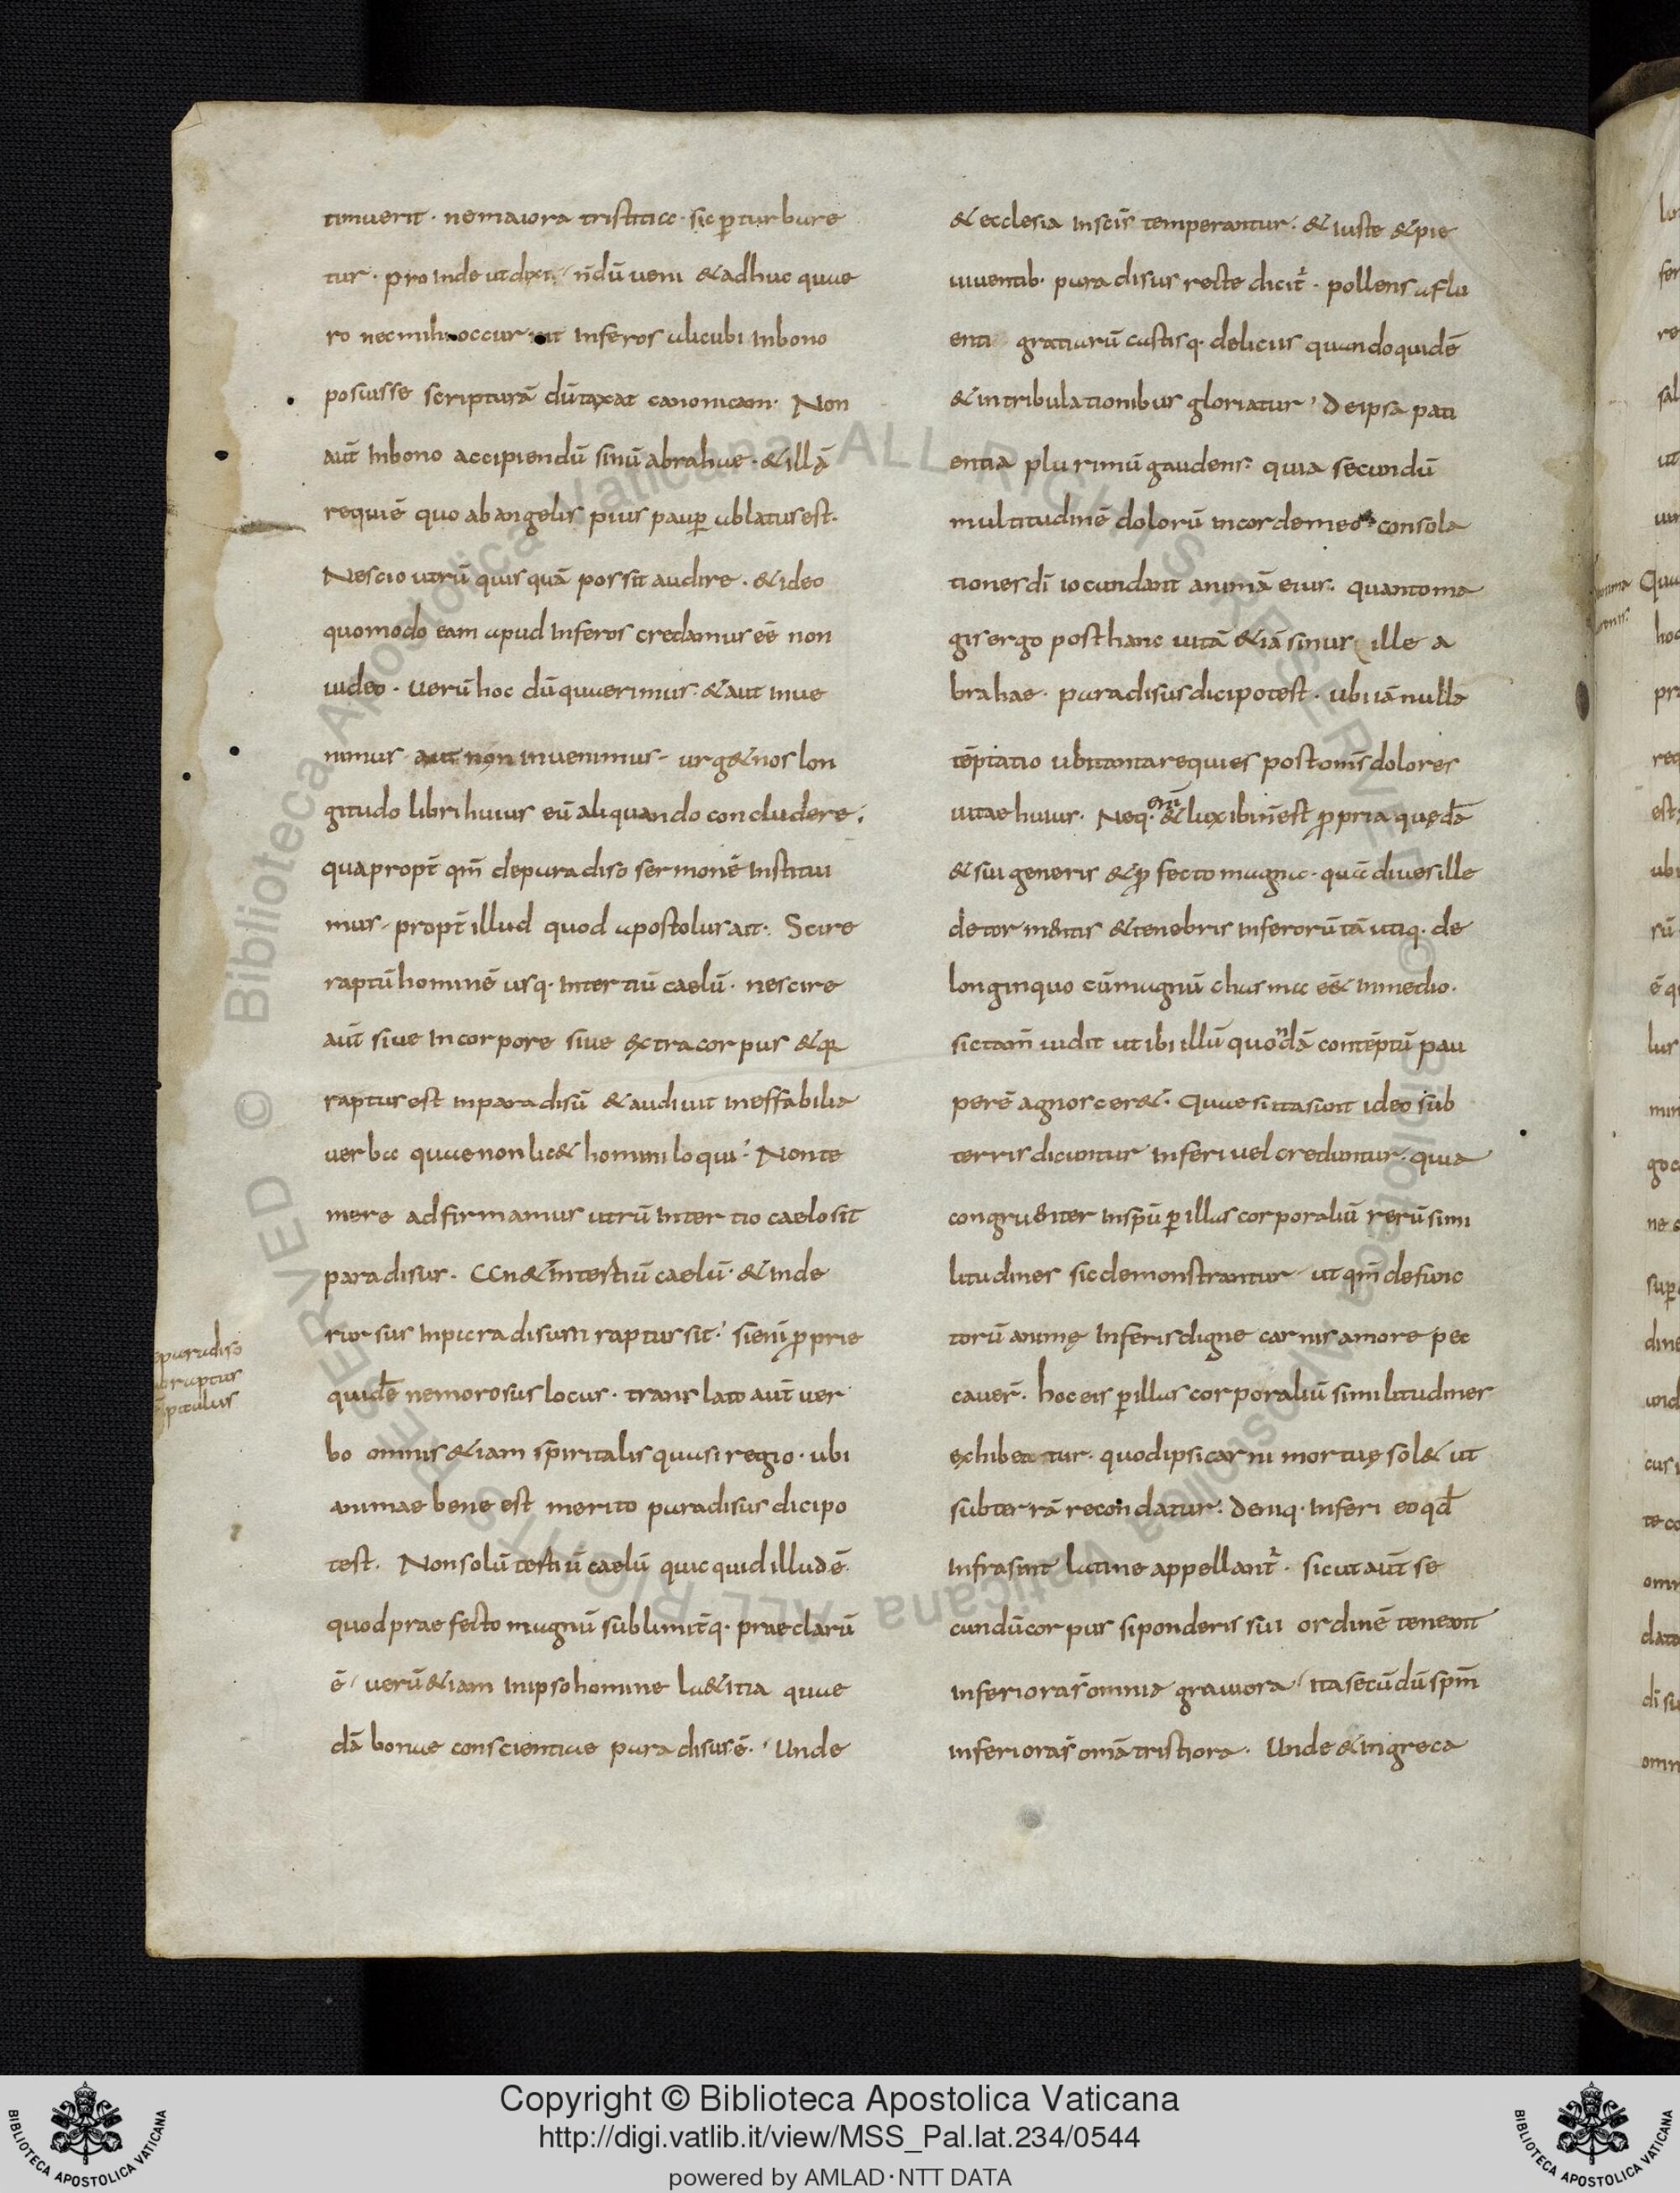 timuerit · nemaiora tristitia · sic ꝑturbure
tur · proinde ut dixi, n̄dū ueni & adhuc quae
ro nec mihi occurrit inferos alicubi inbono
posuisse scripturā dūtaxat canonicam · Non
aūt inbono accipiendū sinū abrahae · & illā
requiē quo abangelis pius pauꝑ ablatus est.
Nescio utrū quisquā possit audire · & ideo
quomodo eam apud inferos credamus eē non
uideo · uerū hoc dū quaerimus · & aut inue
nimus · aut non inuenimus · urg& nos lon
gitudo libri huius eū aliquando concludere;
quapropt̄ qm̄ deparadiso sermonē institui
mus · propt̄ illud quod apostolus ait · Scire
raptū hominē usq· intertiū caelū · nescire
aūt siue incorpore siue extracorpus & qa
raptus est inparadisū & audiuit ineffabilia
uerba quae non lic& homini loqui · Non te
mere adfirmamus utrū intertio caelo sit
paradisus · An & intertiū caelū · & inde
rursus inparadisum raptus sit · si enī ꝓprie
quidē nemorosus locus · translato aūt uer
bo omnis &iam spiritalis quasi regio · ubi
animae bene est merito paradisus dici po
test · Non solū tertiū caelū quicquid illud ē
quod praefecto magnū sublimit̄q· praeclarū
ē · uerū &iam inipso homine la&itia quae
dā bonae conscientiae paradisus ē · Unde
eparadiso
raptus
& ecclesia inscīs temperantur · & iuste & pie
uiuentib· paradisus recte dicit̄ · pollens aflu
enti gratiarū castisq· deliciis quandoquidē
& intribulationibus gloriatur · de ipsa pati
entia plurimū gaudens · quia secundū
multitudinē dolorū incorde meo consola
tiones dī iocundant animā eius · quanto ma
gis ergo post hanc uitā &iā sinus ille a
brahae · paradisus dici potest · ubi iā nulla
tēptatio ubi tanta requies post omīs dolores
uitae huius · Neq· enī & lux ibi n̄ est ꝓpria quędā
& sui generis & ꝓfecto magna · quā diues ille
de torm&tis & tenebris inferorū tā utiq· de
longinquo cū magnū chasma eēt inmedio ·
sic tam̄ uidit ut ibi illū quondā contēptū pau
perē agnoscer& · Quae si ita sunt ideo sub
terris dicuntur inferi uel creduntur · quia
congru&iter inspū ꝑ illas corporaliū rerū simi
litudines sic demonstrantur · ut qm̄ defunc
torū animę inferis dignę carnis amore pec
cauer̄ · hoc eis ꝑ illas corporaliū similitudines
exhibeatur · quod ipsi carni mortuę sol& ut
subterrā recondatur · deniq· inferi eo qd̄
infra sint latine appellant̄ · sicut aūt se
cundū corpus si ponderis sui ordinē teneant
inferiora s̄ omnia grauiora · ita secūdū spm̄
inferiora s̄ om̄a tristiora · Unde & ingreca
Copyright © Biblioteca Apostolica Vaticana
http://digi.vatlib.it/view/MSS_Pal.lat.234/0544
powered by AMLAD·NTT DATA